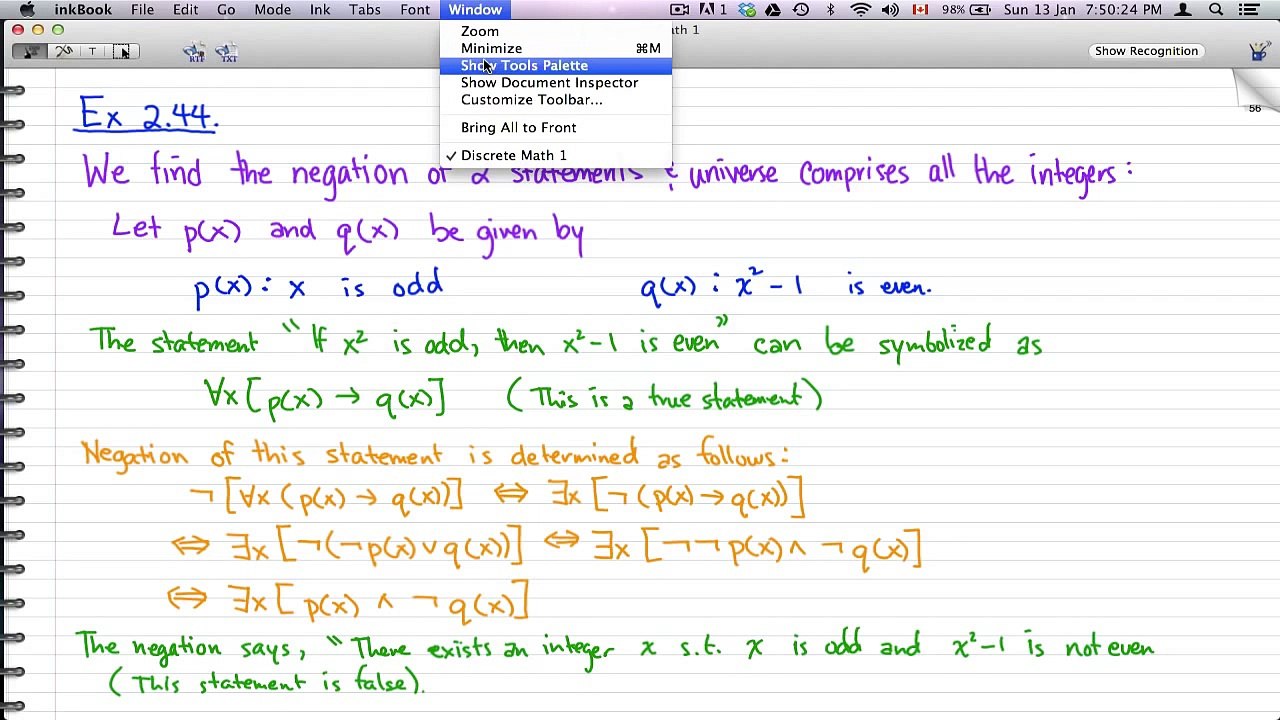 inkBook File Edit Go Mode Ink Tabs Font Window 1 98% Sun 13 Jan 7:50:24 PM
Zoom
Minimize ⌘M
Show Tools Palette
Show Document Inspector
Customize Toolbar...
Bring All to Front
✓ Discrete Math 1
th 1
T RTF TXT Show Recognition
56
Ex 2.44.
We find the negation of 2 statements & universe comprises all the integers:
Let p(x) and q(x) be given by
p(x): x is odd q(x): x²-1 is even.
The statement "If x² is odd, then x²-1 is even" can be symbolized as
∀x[p(x) → q(x)] (This is a true statement)
Negation of this statement is determined as follows:
¬[∀x(p(x) → q(x))] ⇔ ∃x[¬(p(x) → q(x))]
⇔ ∃x[¬(¬p(x) ∨ q(x))] ⇔ ∃x[¬¬p(x) ∧ ¬q(x)]
⇔ ∃x[p(x) ∧ ¬q(x)]
The negation says, "There exists an integer x s.t. x is odd and x²-1 is not even
(This statement is false).